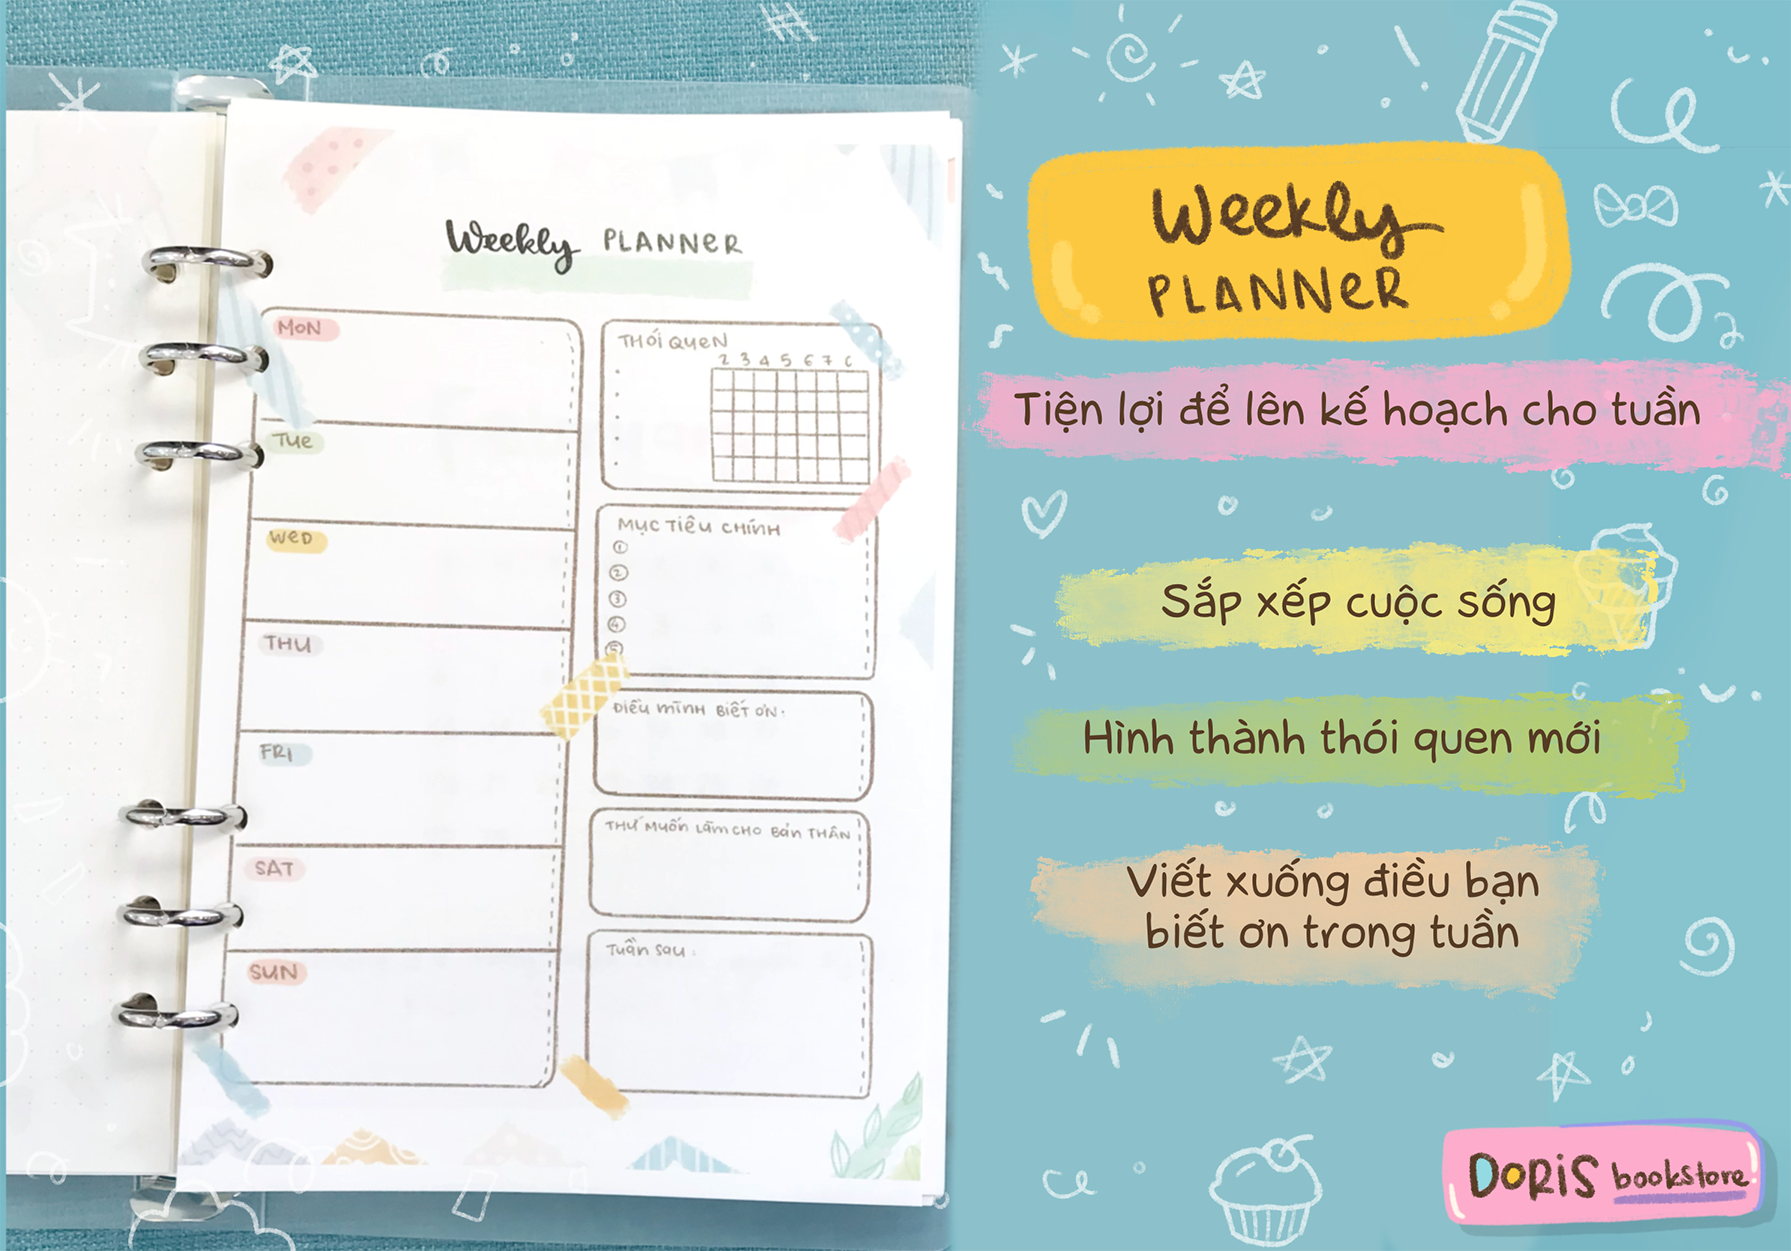 Weekly PLANNER
MON
TUE
WED
THU
FRI
SAT
SUN
THÓI QUEN
2 3 4 5 6 7 C
MỤC TIÊU CHÍNH
1
2
3
4
5
ĐIỀU MÌNH BIẾT ƠN:
THỨ MUỐN LÀM CHO BẢN THÂN
TUẦN SAU:
Weekly
PLANNER
Tiện lợi để lên kế hoạch cho tuần
Sắp xếp cuộc sống
Hình thành thói quen mới
Viết xuống điều bạn
biết ơn trong tuần
DORIS bookstore